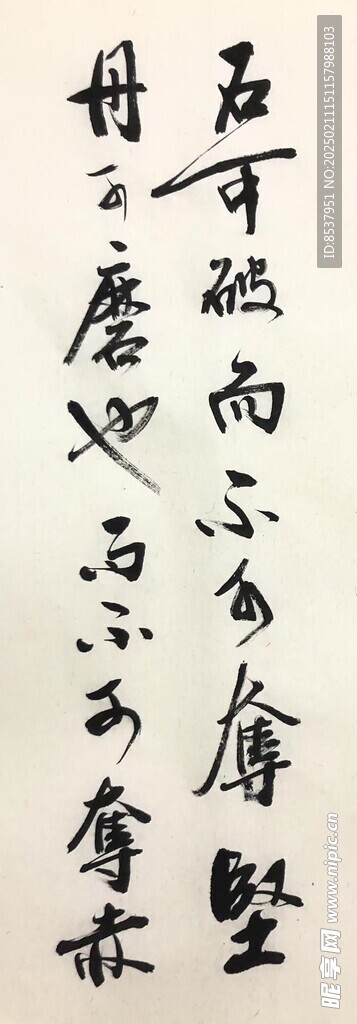 石可破而不可奪堅
丹可磨也而不可奪赤
ID:8537951 NO:20250211151157988103
昵享网 www.nipic.cn